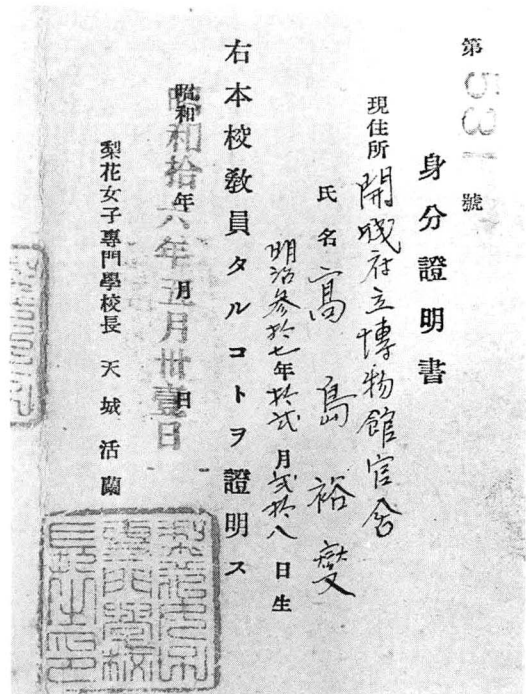 第531號
身分證明書
現住所 開城府立博物館官舍
氏名 髙島裕燮
明治參拾七年拾弐月弐拾八日生
右本校教員タルコトヲ證明ス
昭和 年 月 日
昭和拾六年五月卅壹日
梨花女子專門學校長 天城活蘭
梨花女子專門學校長之印